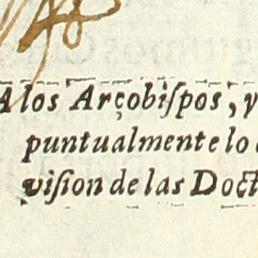 A los Arçobiſpos, y
puntualmente lo
viſion de las Doct